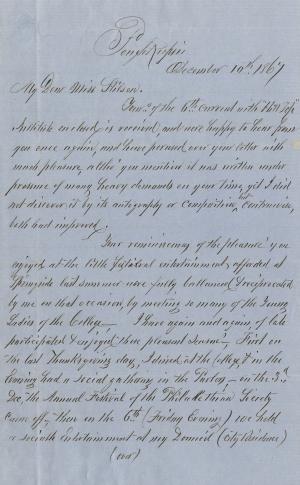 Po'Keepsie
December 10th. 1867
My Dear Miss Stilson.
Your's of the 6th. current with
Institute enclosed is received, and were happy to hear from
you once again, and have perused over your letter with
much pleasure, altho' you mention it was written under
pressure of many heavy demands on your time, yet I did
not discover it by its autography or Composition, but contrariwise,
both had improved,
Your reminiscences of the pleasure you
enjoyed at the little festival entertainment, afforded at
Springside last summer were fully ballanced & reciprocated
by me on that occasion, by meeting so many of the Young
Ladies of the College — I have again and again of late
participated & enjoyed these pleasant scenes, First on
the last Thanksgiving day, I dined at the College, & in the
Evening had a social gathering in the Parlors — on the 3rd.
Dec, the Annual Festival of the Philalethean Society
came off, then on the 6th (Friday Evening) we held
a sociable entertainment at my Domicil (City Residence)
(over)